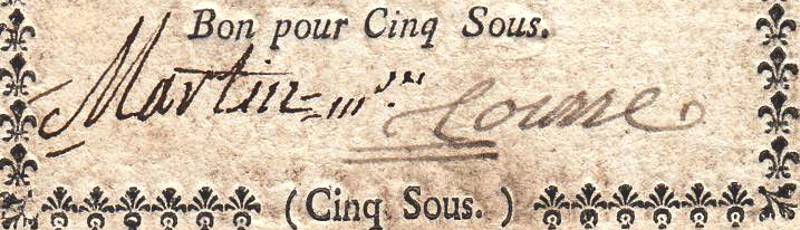 Bon pour Cinq Sous.
Martin
(Cinq Sous.)